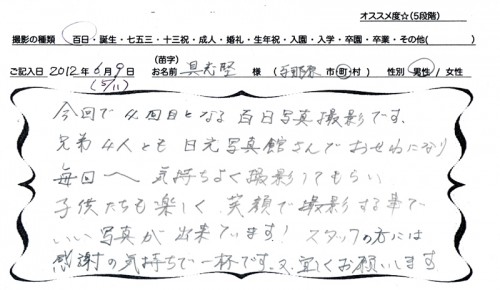 オススメ度☆(5段階)
撮影の種類 百日・誕生・七五三・十三祝・成人・婚礼・生年祝・入園・入学・卒園・卒業・その他( )
(苗字)
ご記入日 2012年6月9日 お名前 具志堅 様 ( 市・町・村) 性別 男性 / 女性
(5/11)
今回で4回目となる百日写真撮影です。
兄弟4人とも日光写真館さんでおせわになり
毎回 気持ちよく撮影してもらい
子供たちも楽しく笑顔で撮影する事で
いい写真が出来ています! スタッフの方には
感謝の気持ちで一杯です。又、宜しくお願いします